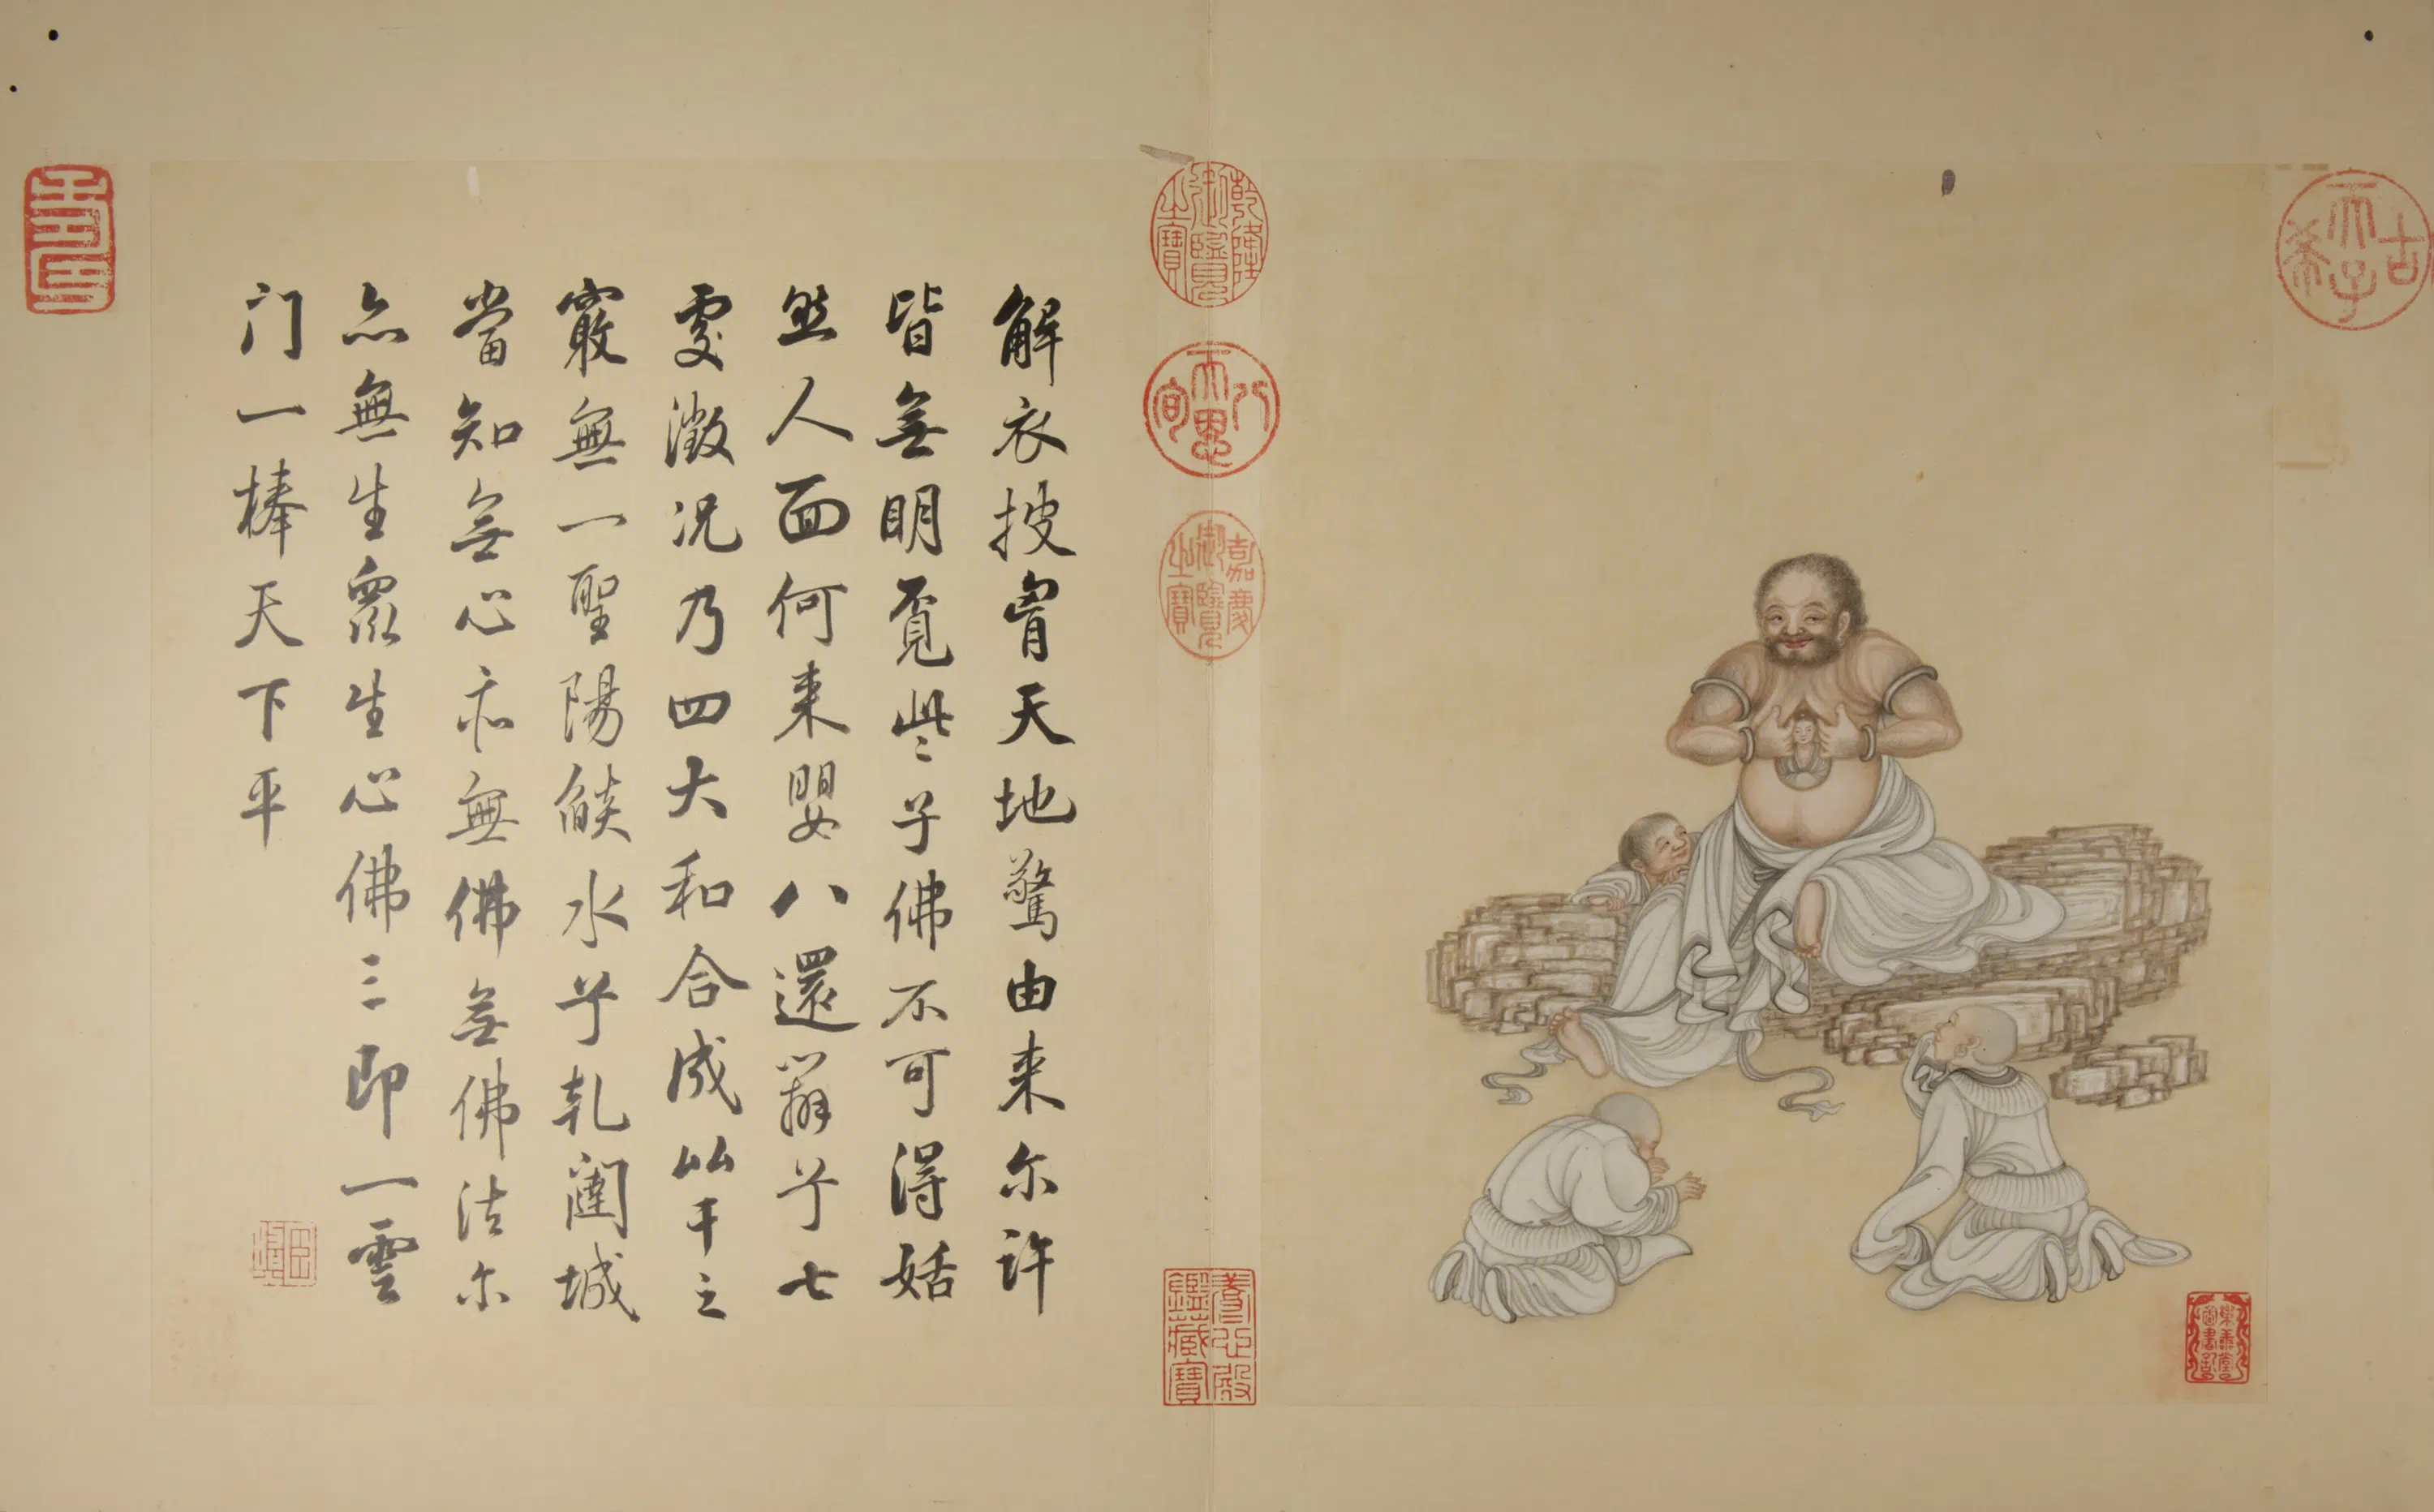 古希天子
樂善堂圖書記
乾隆御覽之寶
天恩八旬
嘉慶御覽之寶
養心殿鑑藏寶
解衣披胷天地驚由来尔許
皆無明覓些子佛不可得姡
然人面何来嬰八還辯兮七
處澂况乃四大和合成比干之
竅無一聖陽燄水兮乹闥城
當知無心亦無佛無佛法尔
亦無生眾生心佛三即一雲
门一棒天下平
壽